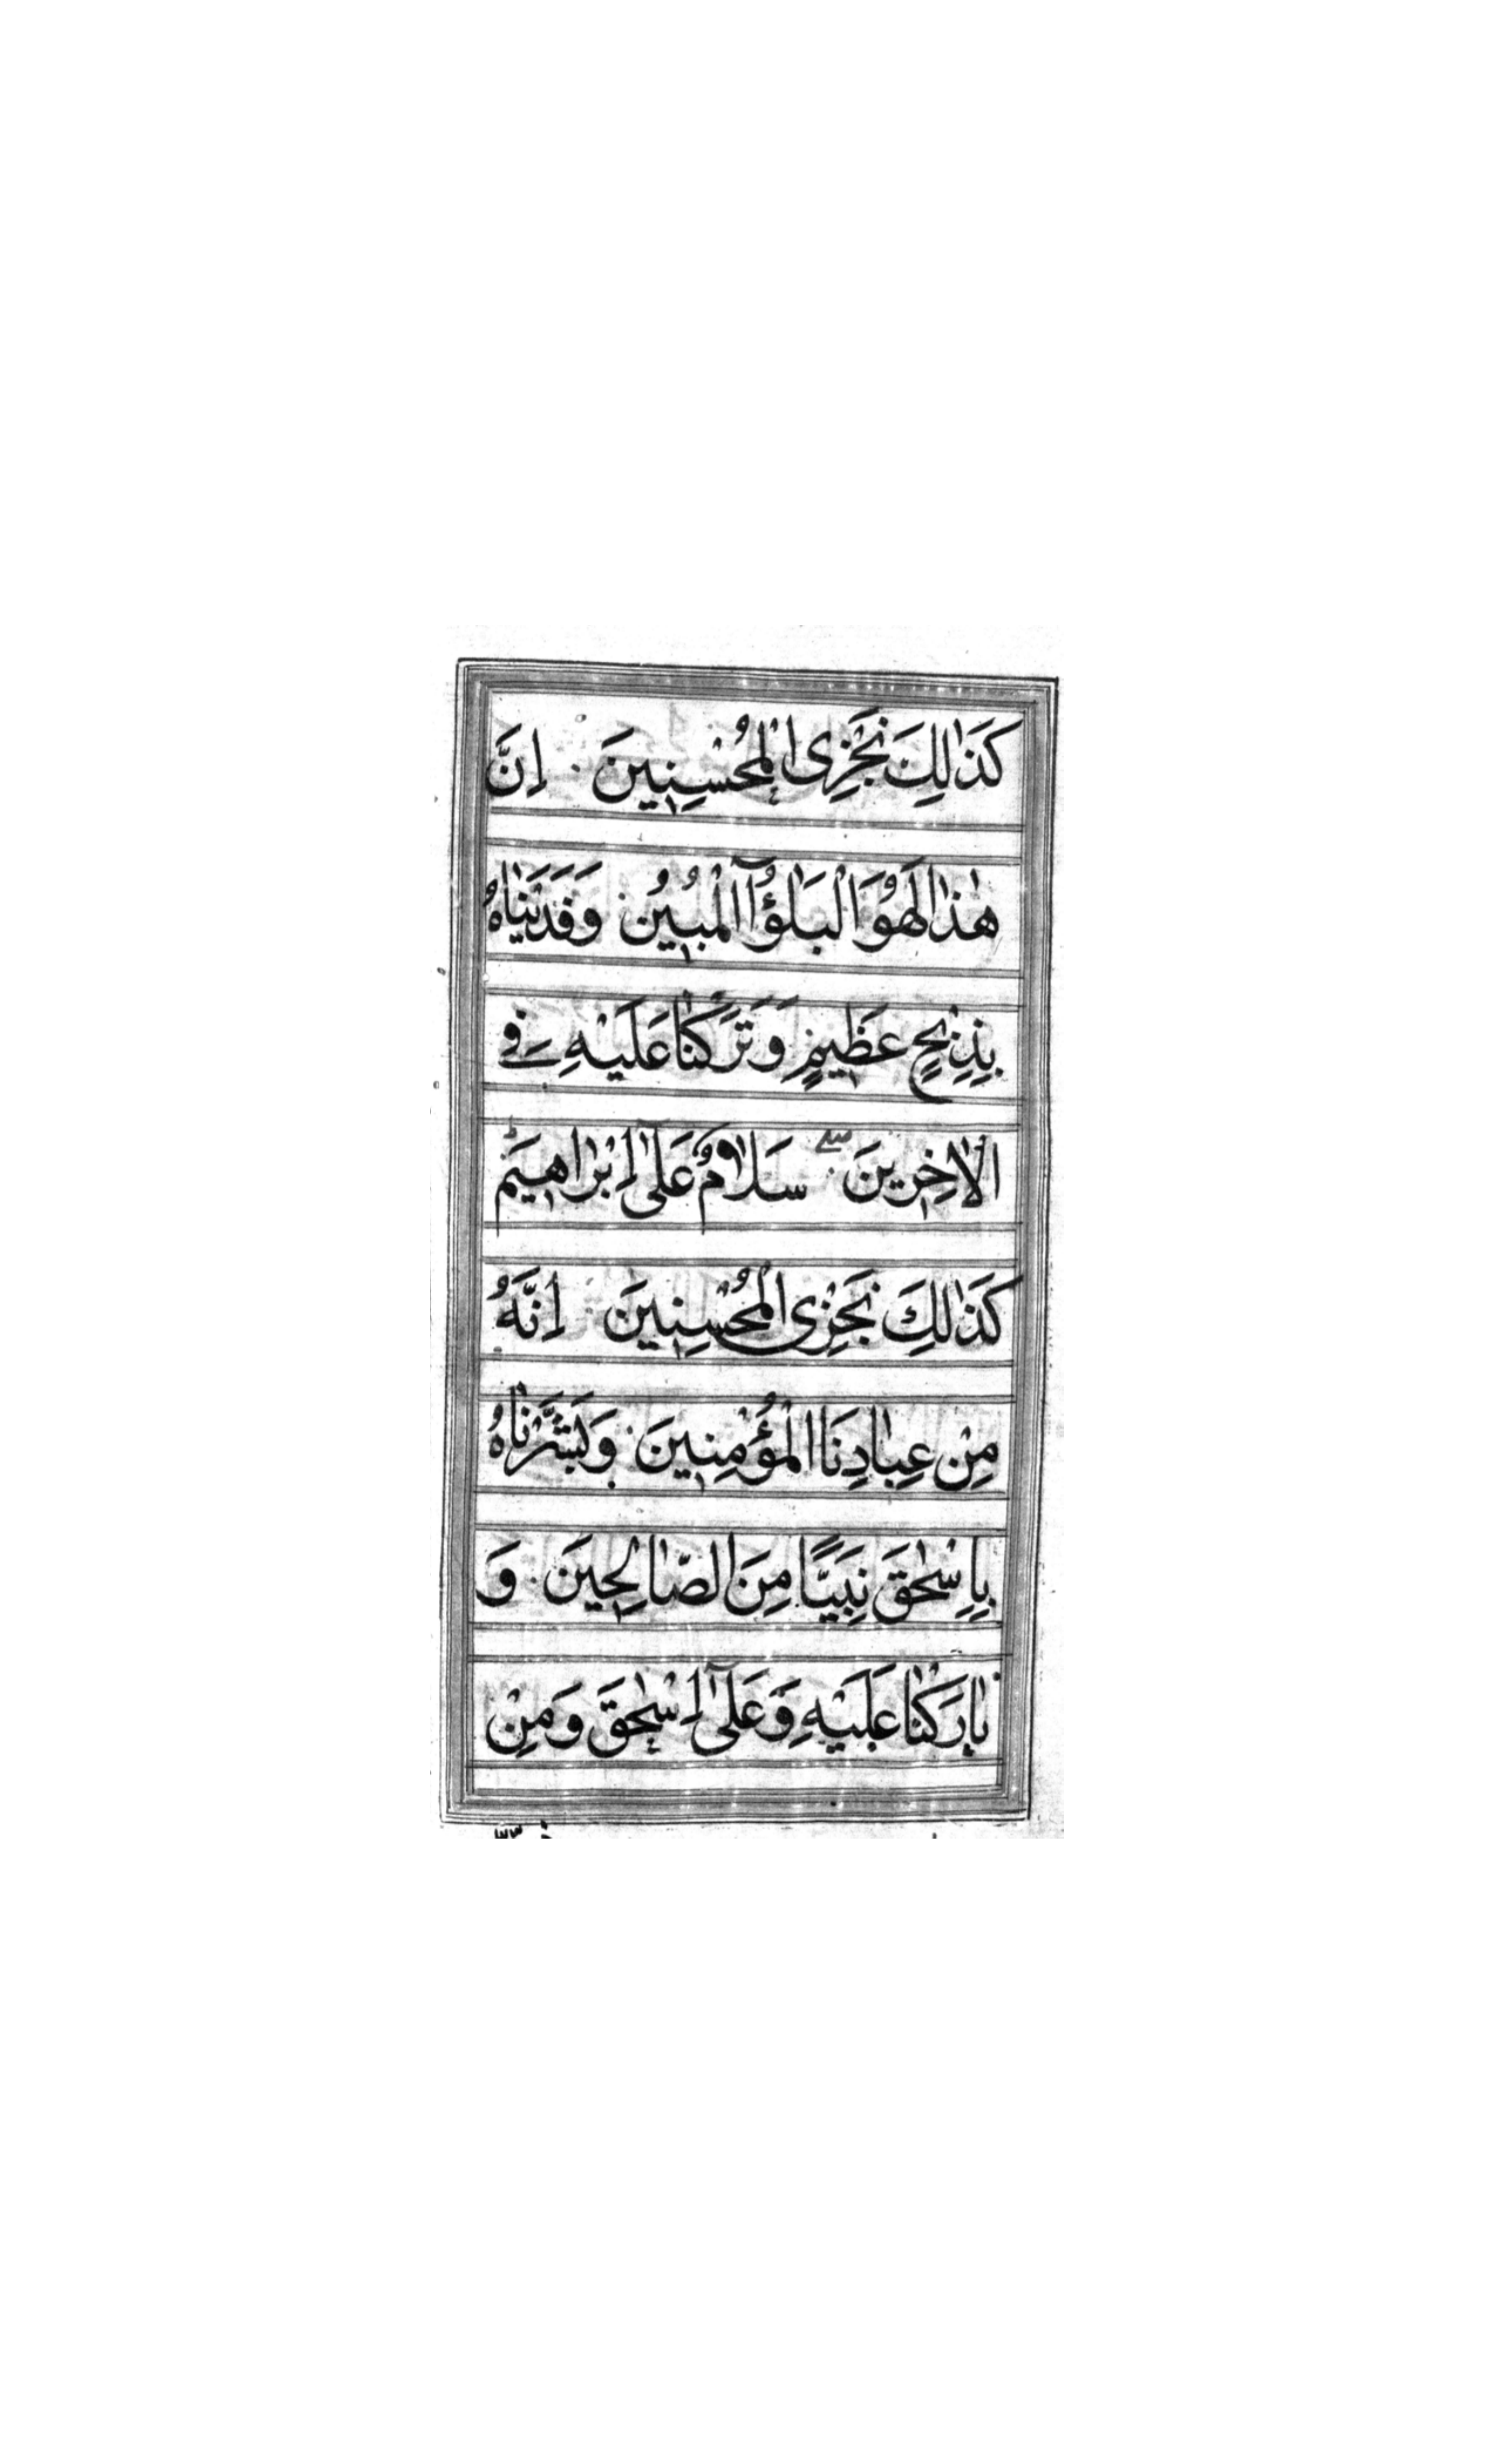 كَذٰلِكَ نَجْزِى الْمُحْسِنِينَ اِنَّ
هٰذَا لَهُوَ الْبَلٰؤُٓا الْمُبِينُ وَفَدَيْنَاهُ
بِذِبْحٍ عَظِيمٍ وَتَرَكْنَا عَلَيْهِ فِى
الْاٰخِرِينَ سَلَامٌ عَلٰٓى اِبْرَاهِيمَ
كَذٰلِكَ نَجْزِى الْمُحْسِنِينَ اِنَّهُ
مِنْ عِبَادِنَا الْمُؤْمِنِينَ وَبَشَّرْنَاهُ
بِاِسْحٰقَ نَبِيًّا مِنَ الصَّالِحِينَ وَ
بَارَكْنَا عَلَيْهِ وَعَلٰٓى اِسْحٰقَ وَمِنْ